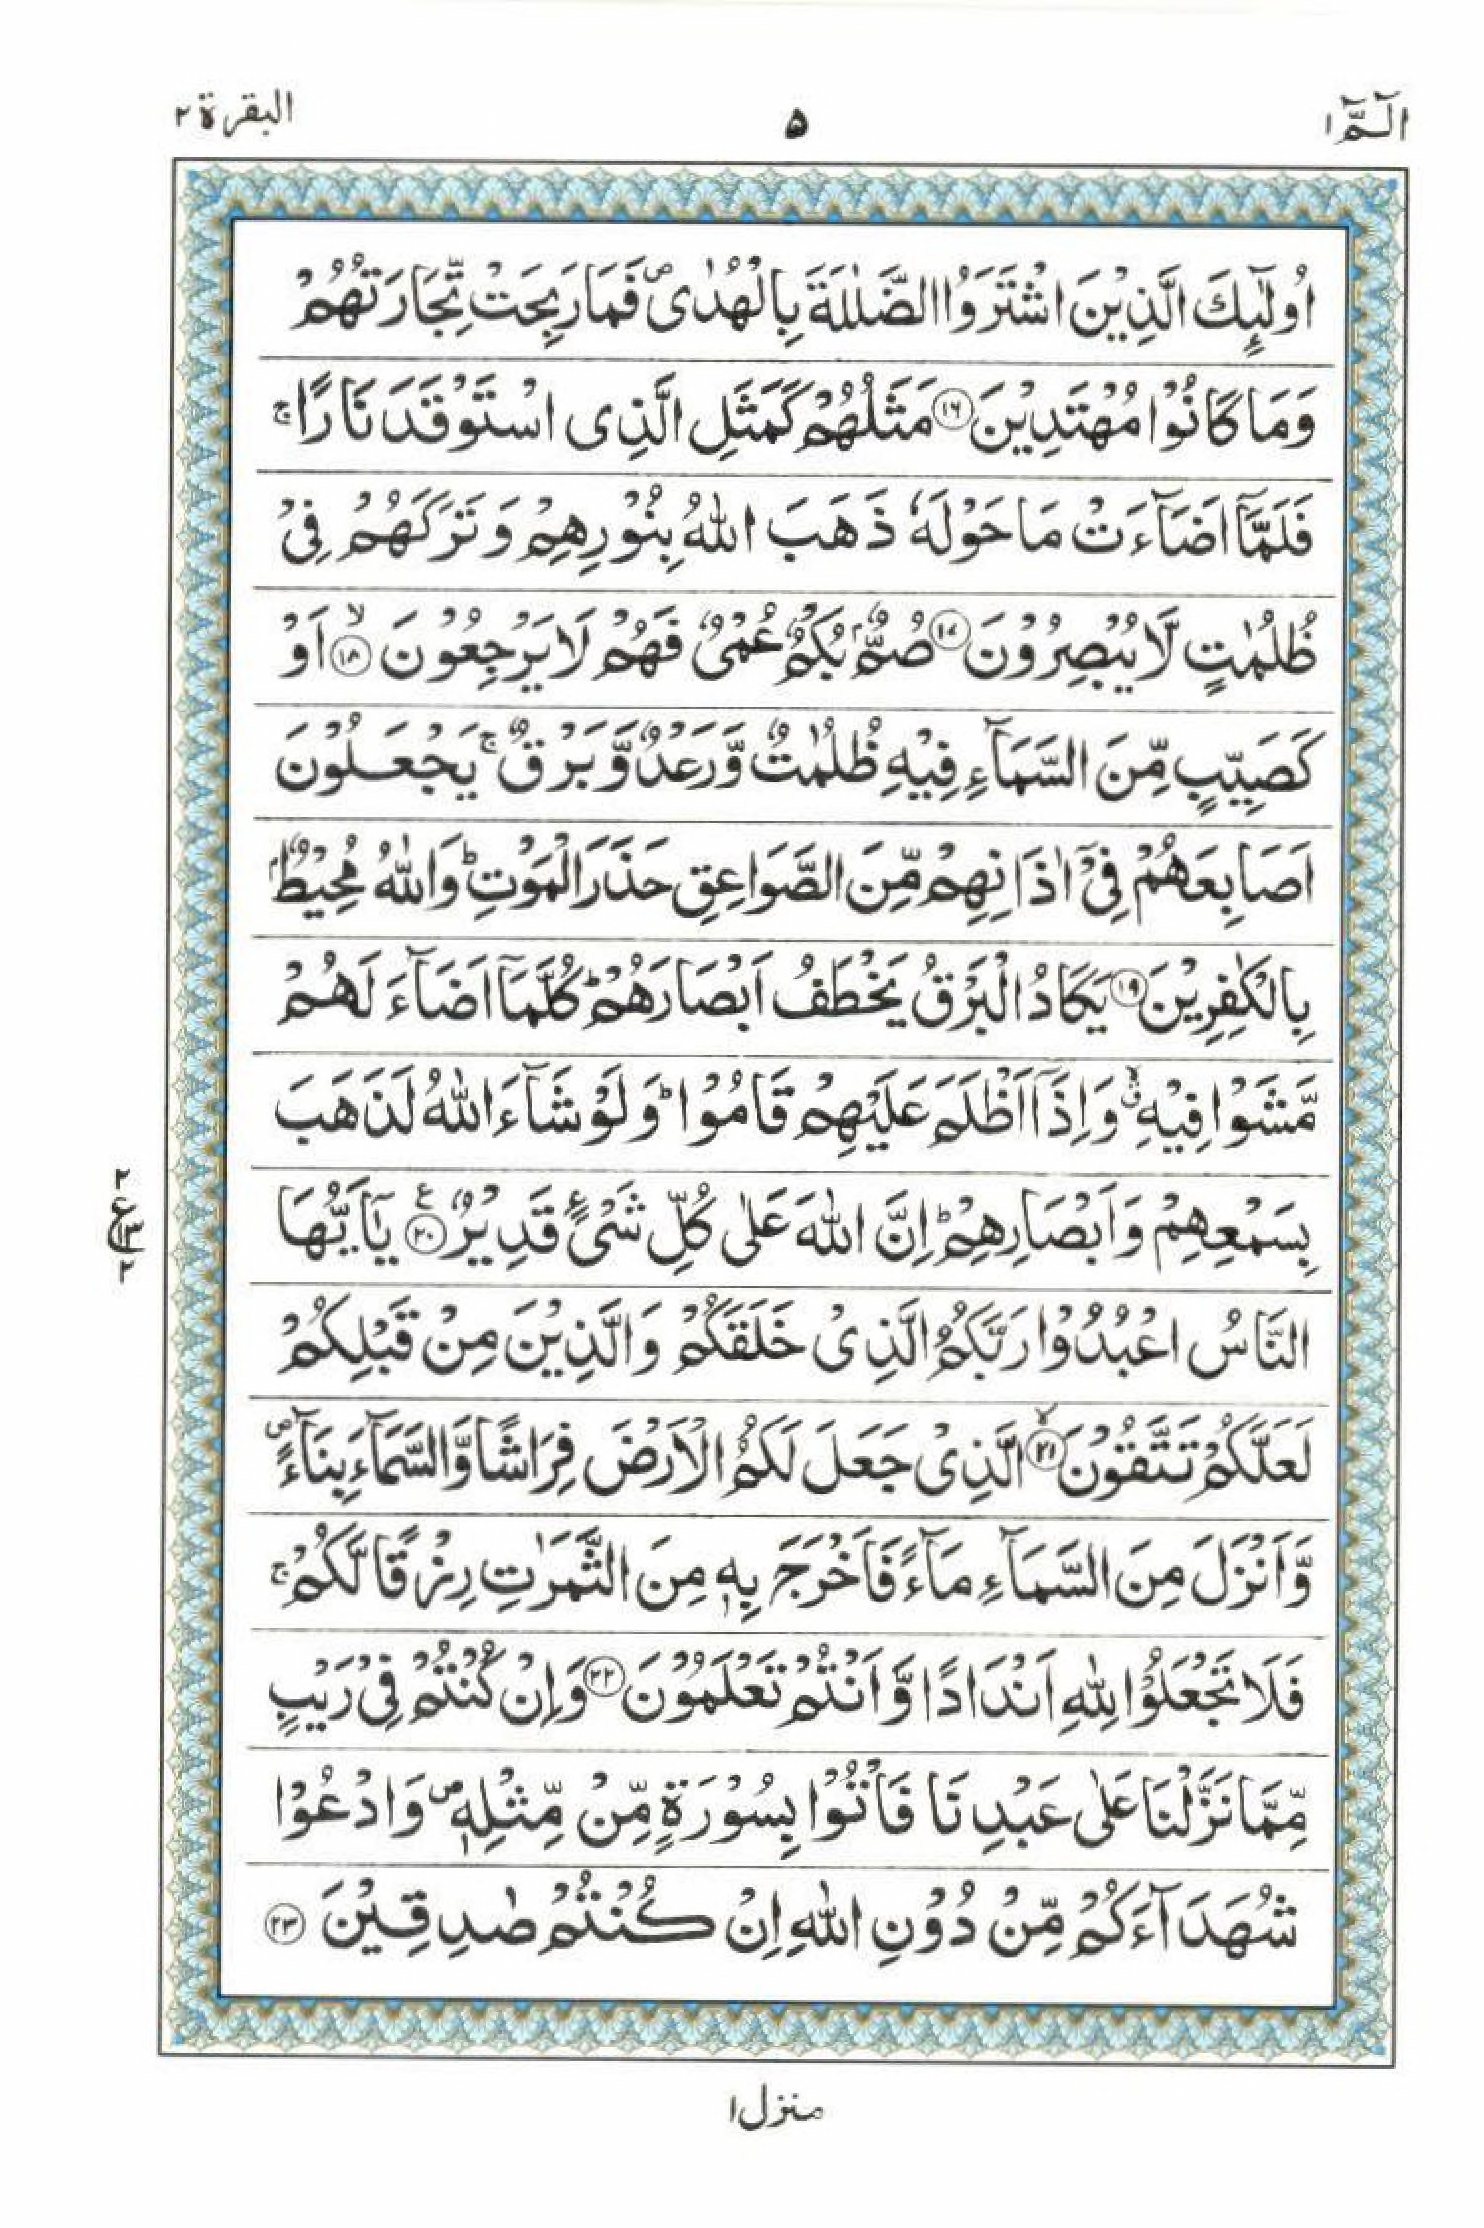 الٓمّٓ ١
٥
البقرة ٢
اُولٰٓئِكَ الَّذِيْنَ اشْتَرَوُا الضَّلٰلَةَ بِالْهُدٰى ۪ فَمَا رَبِحَتْ تِّجَارَتُهُمْ
وَمَا كَانُوْا مُهْتَدِيْنَ ﴿١٦﴾ مَثَلُهُمْ كَمَثَلِ الَّذِى اسْتَوْقَدَ نَارًا ۚ
فَلَمَّآ اَضَآءَتْ مَا حَوْلَهٗ ذَهَبَ اللّٰهُ بِنُوْرِهِمْ وَتَرَكَهُمْ فِىْ
ظُلُمٰتٍ لَّا يُبْصِرُوْنَ ﴿١٧﴾ صُمٌّۢ بُكْمٌ عُمْىٌ فَهُمْ لَا يَرْجِعُوْنَ ﴿١٨﴾ ۙ اَوْ
كَصَيِّبٍ مِّنَ السَّمَآءِ فِيْهِ ظُلُمٰتٌ وَّرَعْدٌ وَّبَرْقٌ ۚ يَجْعَلُوْنَ
اَصَابِعَهُمْ فِىْٓ اٰذَانِهِمْ مِّنَ الصَّوَاعِقِ حَذَرَ الْمَوْتِ ؕ وَاللّٰهُ مُحِيْطٌۢ
بِالْكٰفِرِيْنَ ﴿١٩﴾ يَكَادُ الْبَرْقُ يَخْطَفُ اَبْصَارَهُمْ ؕ كُلَّمَآ اَضَآءَ لَهُمْ
مَّشَوْا فِيْهِ ۙ وَاِذَآ اَظْلَمَ عَلَيْهِمْ قَامُوْا ؕ وَلَوْ شَآءَ اللّٰهُ لَذَهَبَ
بِسَمْعِهِمْ وَاَبْصَارِهِمْ ؕ اِنَّ اللّٰهَ عَلٰى كُلِّ شَىْءٍ قَدِيْرٌ ﴿٢٠﴾ ع يٰٓاَيُّهَا
النَّاسُ اعْبُدُوْا رَبَّكُمُ الَّذِىْ خَلَقَكُمْ وَالَّذِيْنَ مِنْ قَبْلِكُمْ
لَعَلَّكُمْ تَتَّقُوْنَ ﴿٢١﴾ ۙ الَّذِىْ جَعَلَ لَكُمُ الْاَرْضَ فِرَاشًا وَّالسَّمَآءَ بِنَآءً ۪
وَّاَنْزَلَ مِنَ السَّمَآءِ مَآءً فَاَخْرَجَ بِهٖ مِنَ الثَّمَرٰتِ رِزْقًا لَّكُمْ ۚ
فَلَا تَجْعَلُوْا لِلّٰهِ اَنْدَادًا وَّاَنْتُمْ تَعْلَمُوْنَ ﴿٢٢﴾ وَاِنْ كُنْتُمْ فِىْ رَيْبٍ
مِّمَّا نَزَّلْنَا عَلٰى عَبْدِنَا فَاْتُوْا بِسُوْرَةٍ مِّنْ مِّثْلِهٖ ۪ وَادْعُوْا
شُهَدَآءَكُمْ مِّنْ دُوْنِ اللّٰهِ اِنْ كُنْتُمْ صٰدِقِيْنَ ﴿٢٣﴾
٢
ع ١٣
٢
منزل ١